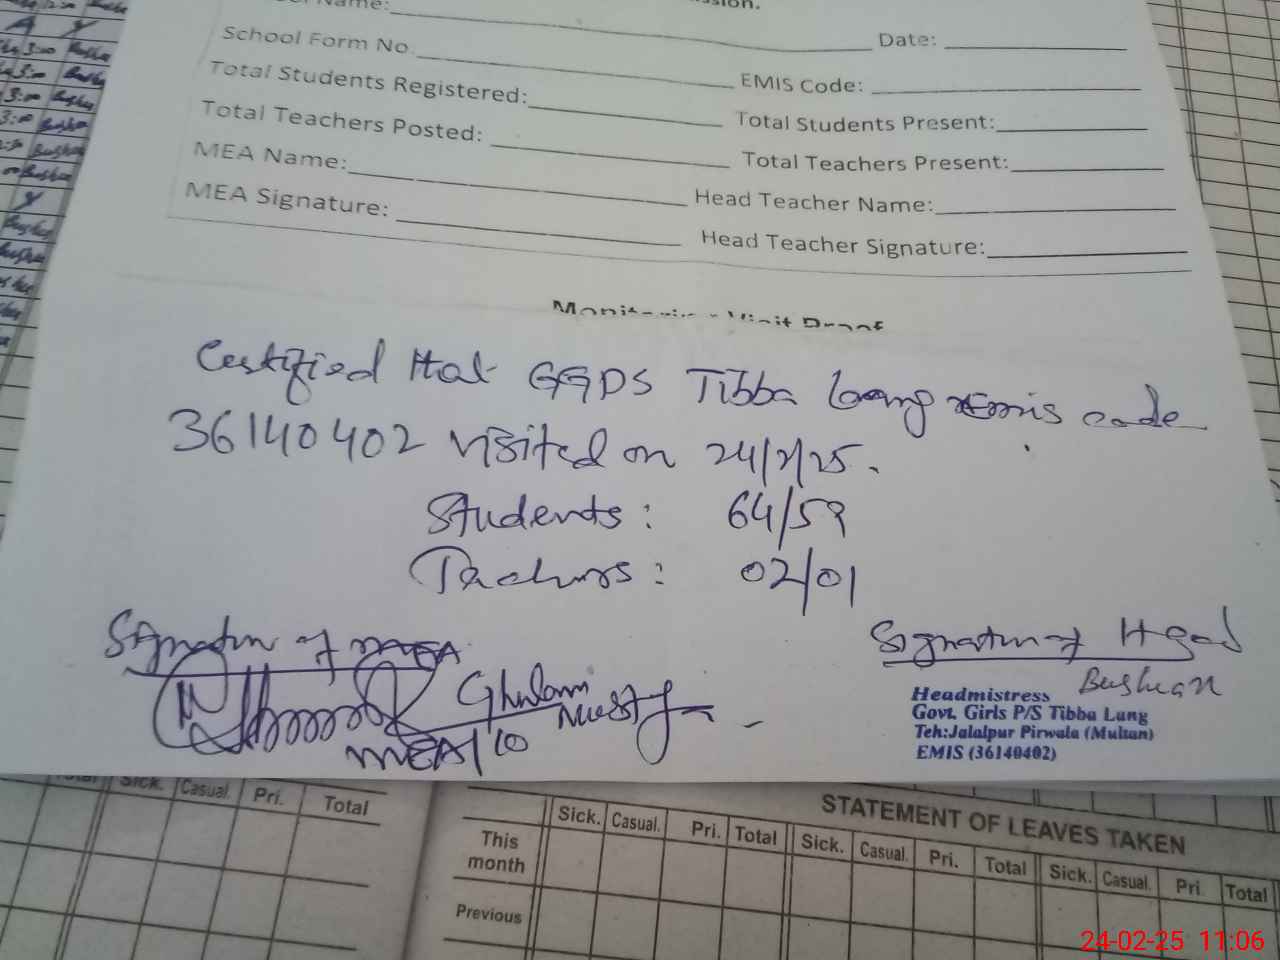 Name:
Date:
School Form No.
EMIS Code:
Total Students Registered:
Total Students Present:
Total Teachers Posted:
Total Teachers Present:
MEA Name:
Head Teacher Name:
MEA Signature:
Head Teacher Signature:
Monitoring Visit Proof
Certified that GGPS Tibba Lang emis code
36140402 visited on 24/2/25.
Students: 64/59
Teachers: 02/01
Signature of MEA
Signature of Head
Ghulam
MEA/10
Bushran
Headmistress
Govt. Girls P/S Tibba Lang
Teh:Jalalpur Pirwala (Multan)
EMIS (36140402)
Total Sick. Casual. Pri. Total
STATEMENT OF LEAVES TAKEN
Sick. Casual. Pri. Total Sick. Casual. Pri. Total Sick. Casual. Pri. Total
This month
Previous
24-02-25 11:06